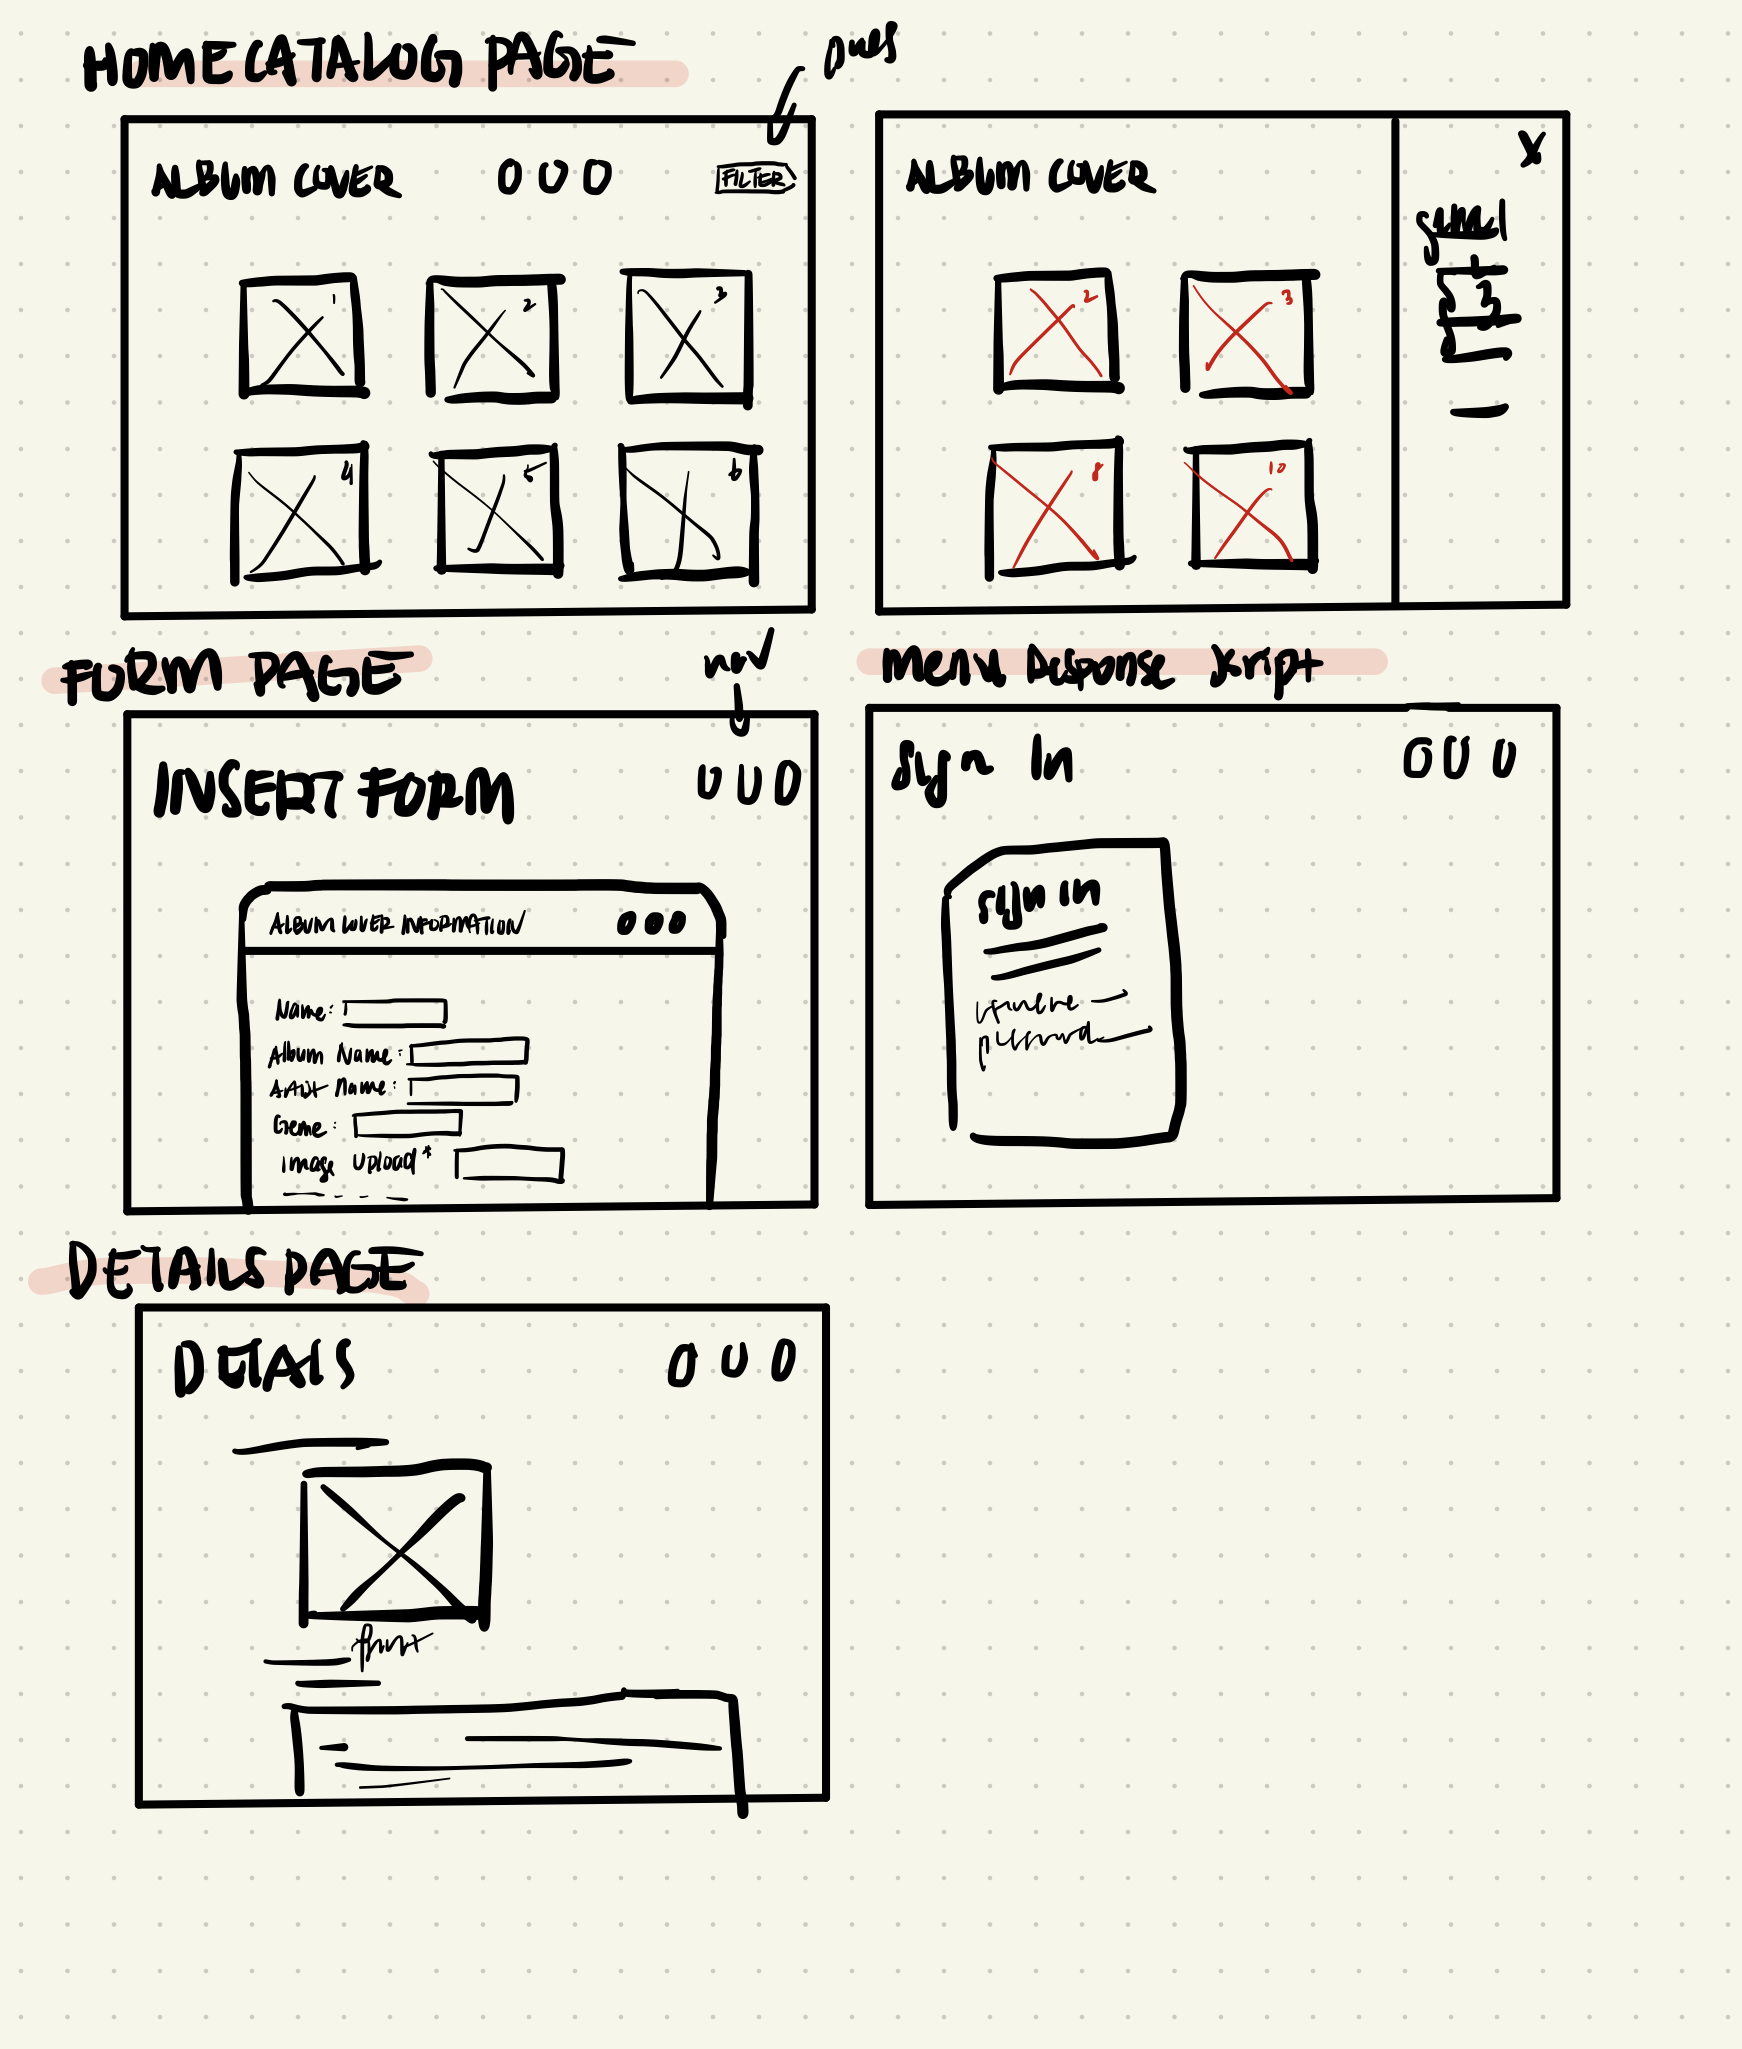 HOME CATALOG PAGE
ALBUM COVER
FILTER
1
2
3
4
5
6
ALBUM COVER
X
2
3
8
10
FORM PAGE
nav
INSERT FORM
ALBUM COVER INFORMATION
Name:
Album Name:
Name:
Genre:
Image Upload*
Menu Response Script
Sign In
sign in
password
DETAILS PAGE
DETAILS